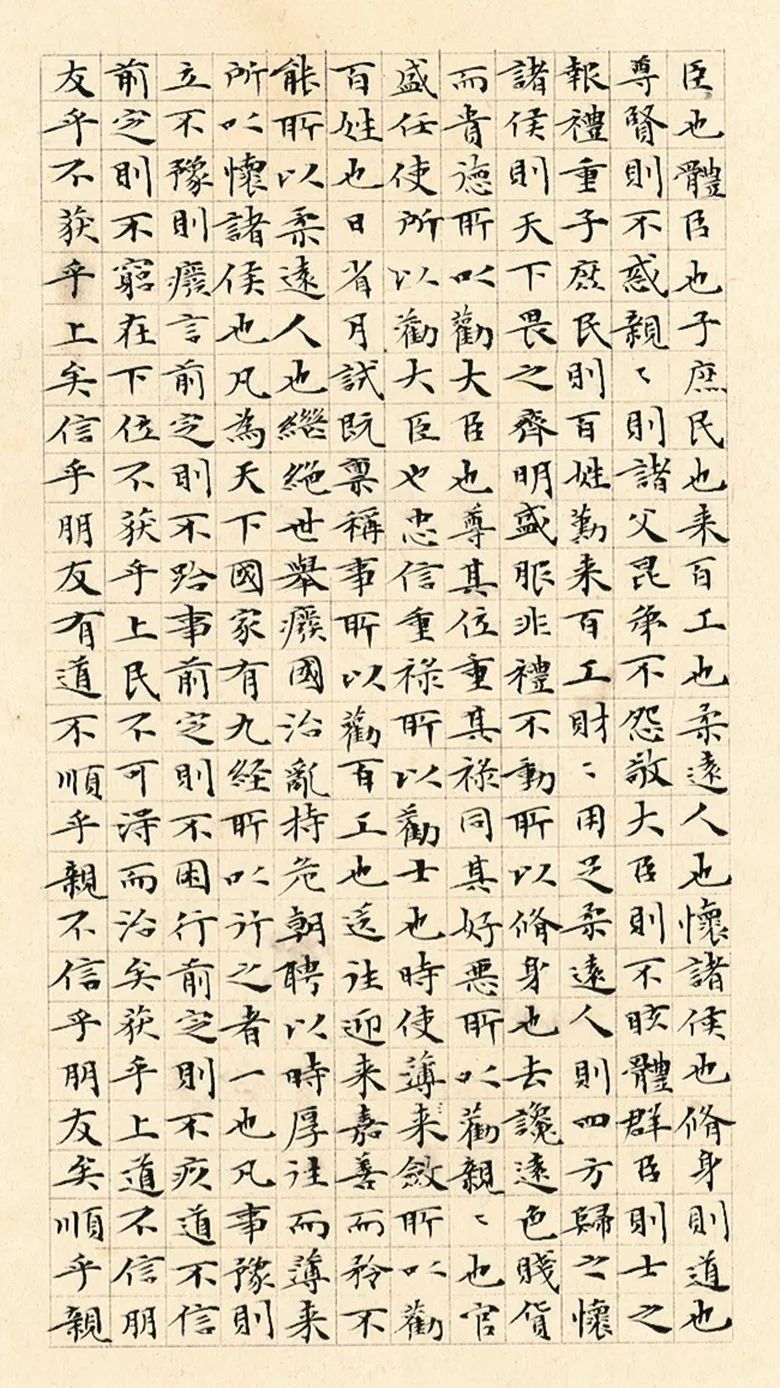 臣也體臣也子庶民也来百工也柔遠人也懷諸侯也脩身則道也
尊賢則不惑親〻則諸父昆弟不怨敬大臣則不眩體群臣則士之
報禮重子庶民則百姓勸来百工財〻用足柔遠人則四方歸之懷
諸侯則天下畏之齊明盛服非禮不動所以脩身也去讒遠色賤貨
而貴德所以勸大臣也尊其位重其祿同其好惡所以勸親〻也官
盛任使所以勸大臣也忠信重祿所以勸士也時使薄来斂所以勸
百姓也日省月試既稟稱事所以勸百工也送往迎来嘉善而矜不
能所以柔遠人也繼絕世舉廢國治亂持危朝聘以時厚往而薄来
所以懷諸侯也凡為天下國家有九经所以行之者一也凡事豫則
立不豫則廢言前定則不跲事前定則不困行前定則不疚道不信
前定則不窮在下位不获乎上民不可得而治矣获乎上道不信朋
友乎不获乎上矣信乎朋友有道不順乎親不信乎朋友矣順乎親